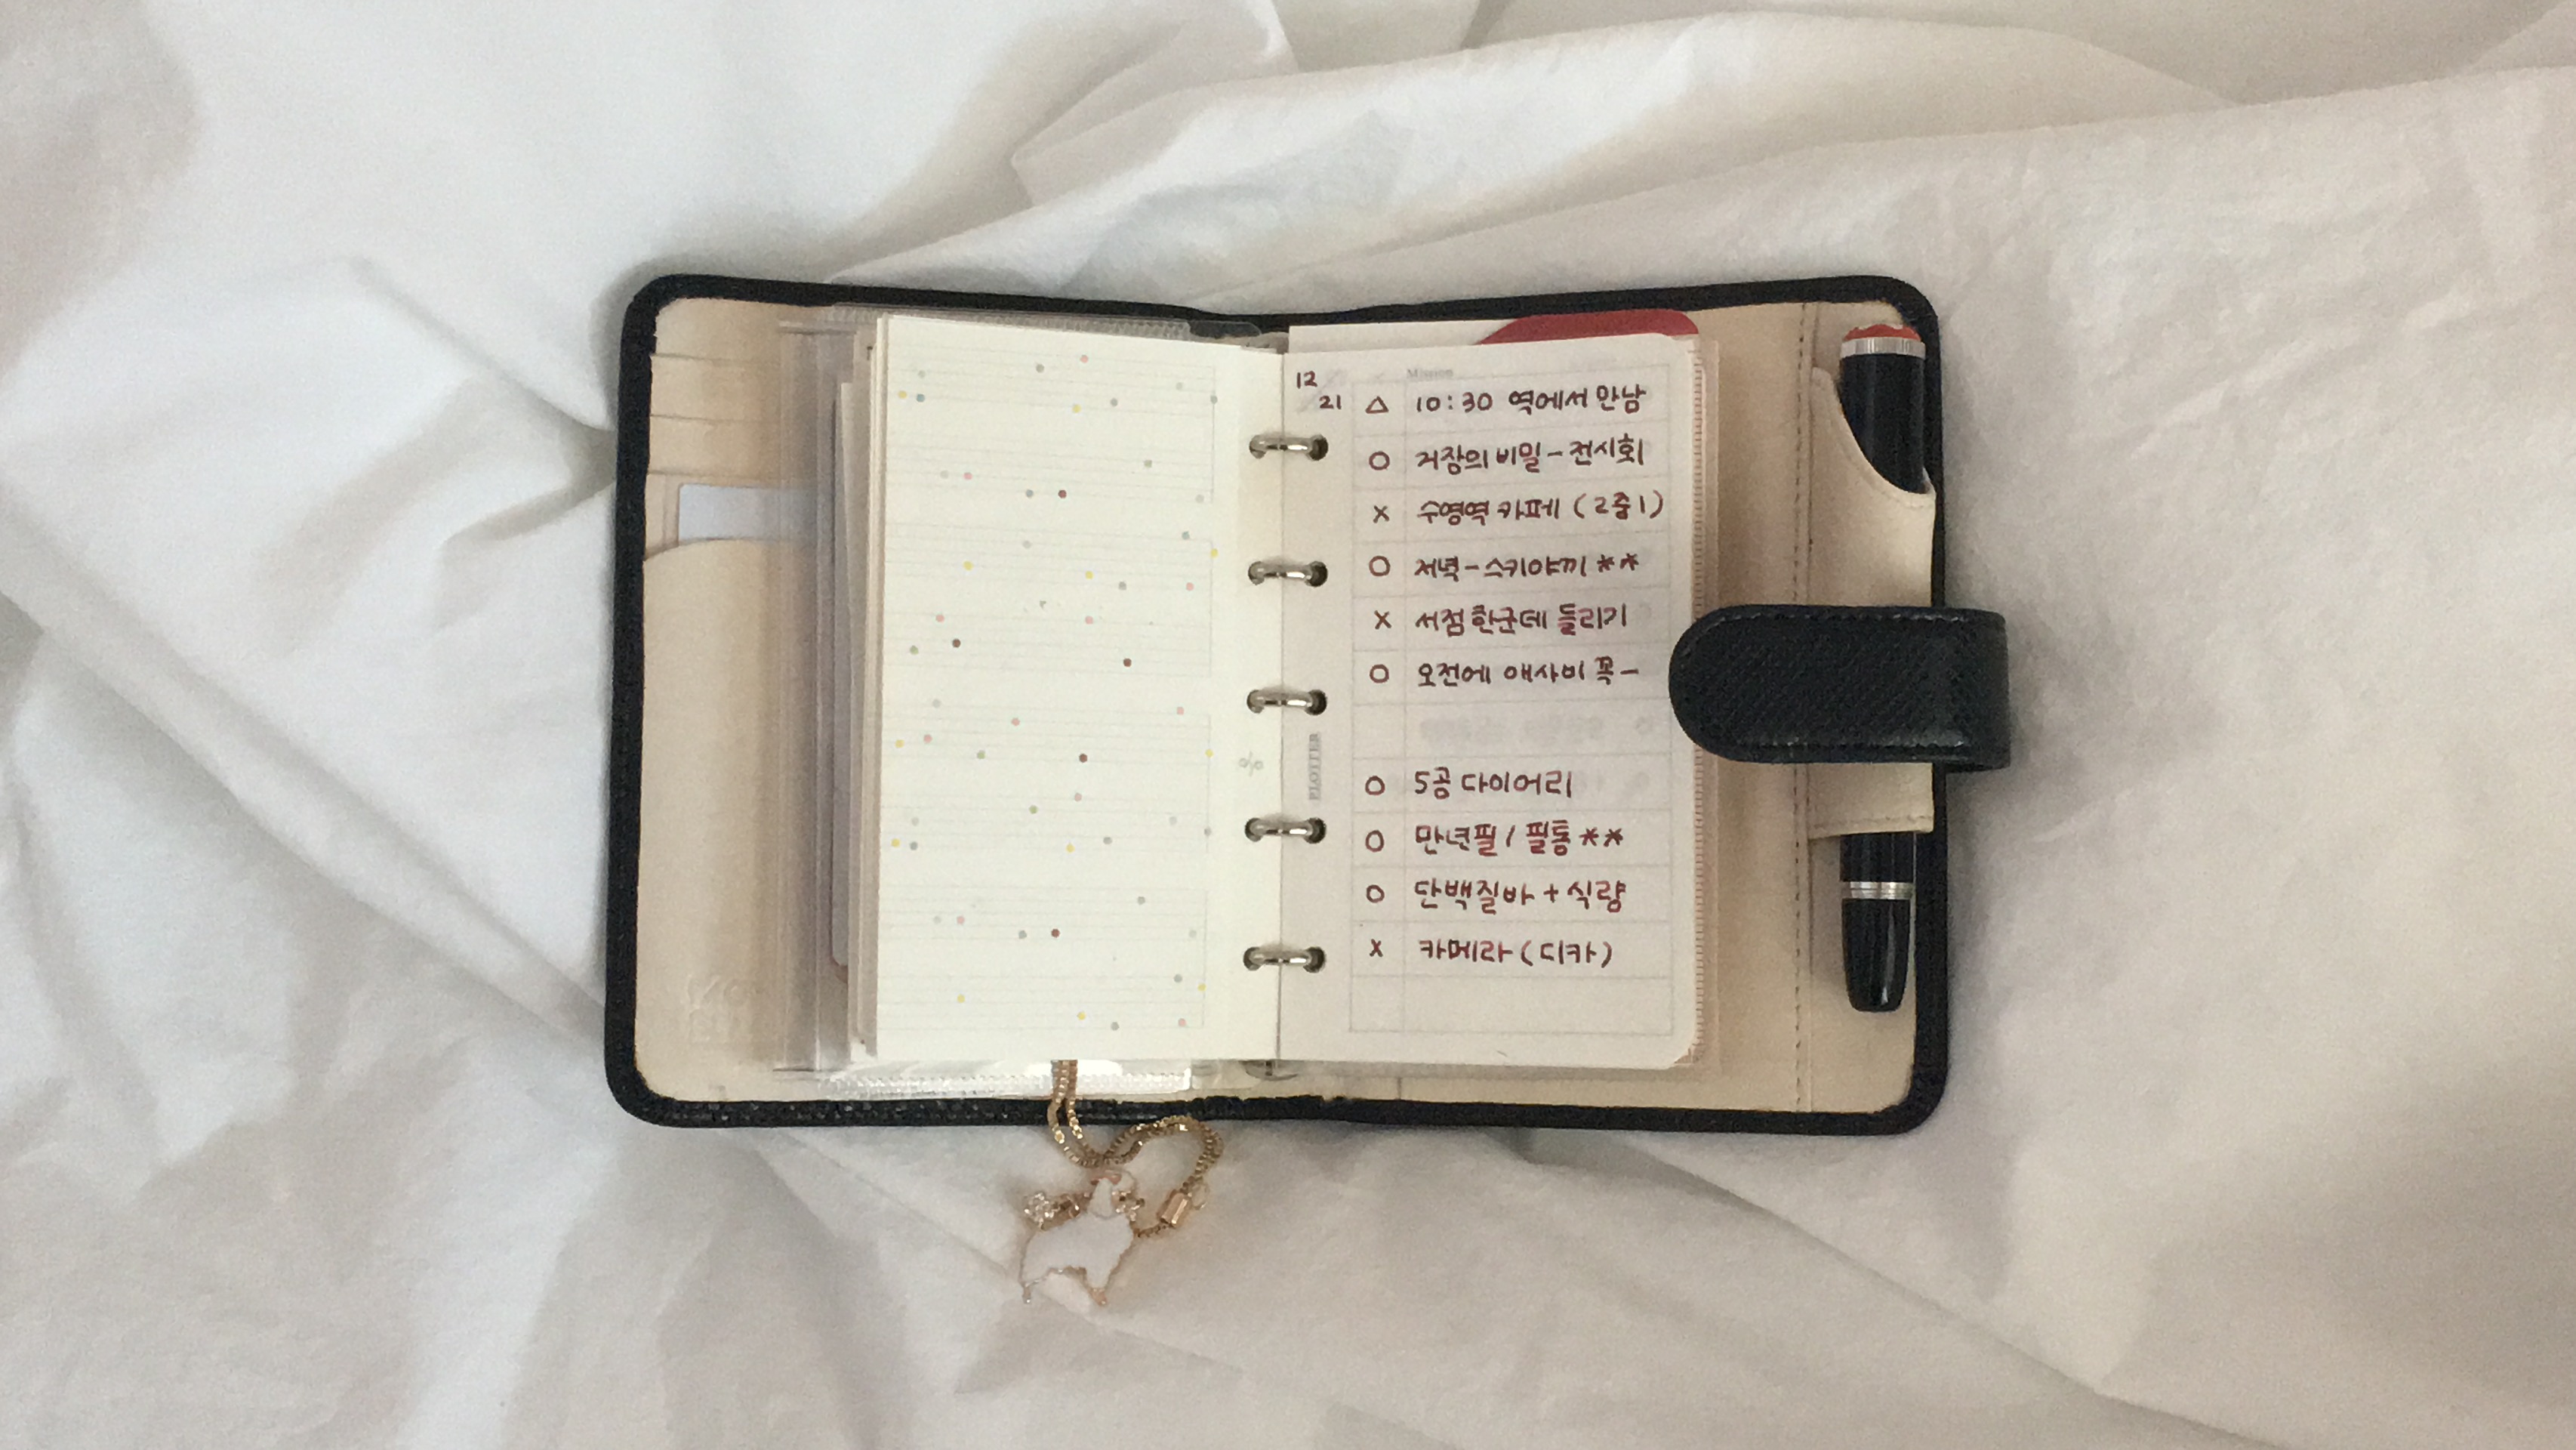 Mission
12
21 △ 10:30 역에서 만남
○ 거장의 비밀 - 전시회
× 수영역 카페 (2중1)
○ 저녁 - 스키야끼 **
× 서점 한군데 들리기
○ 오전에 애사비 꼭 -
○ 5공 다이어리
○ 만년필 / 필통 **
○ 단백질바 + 식량
× 카메라 (디카)
PLOTTER